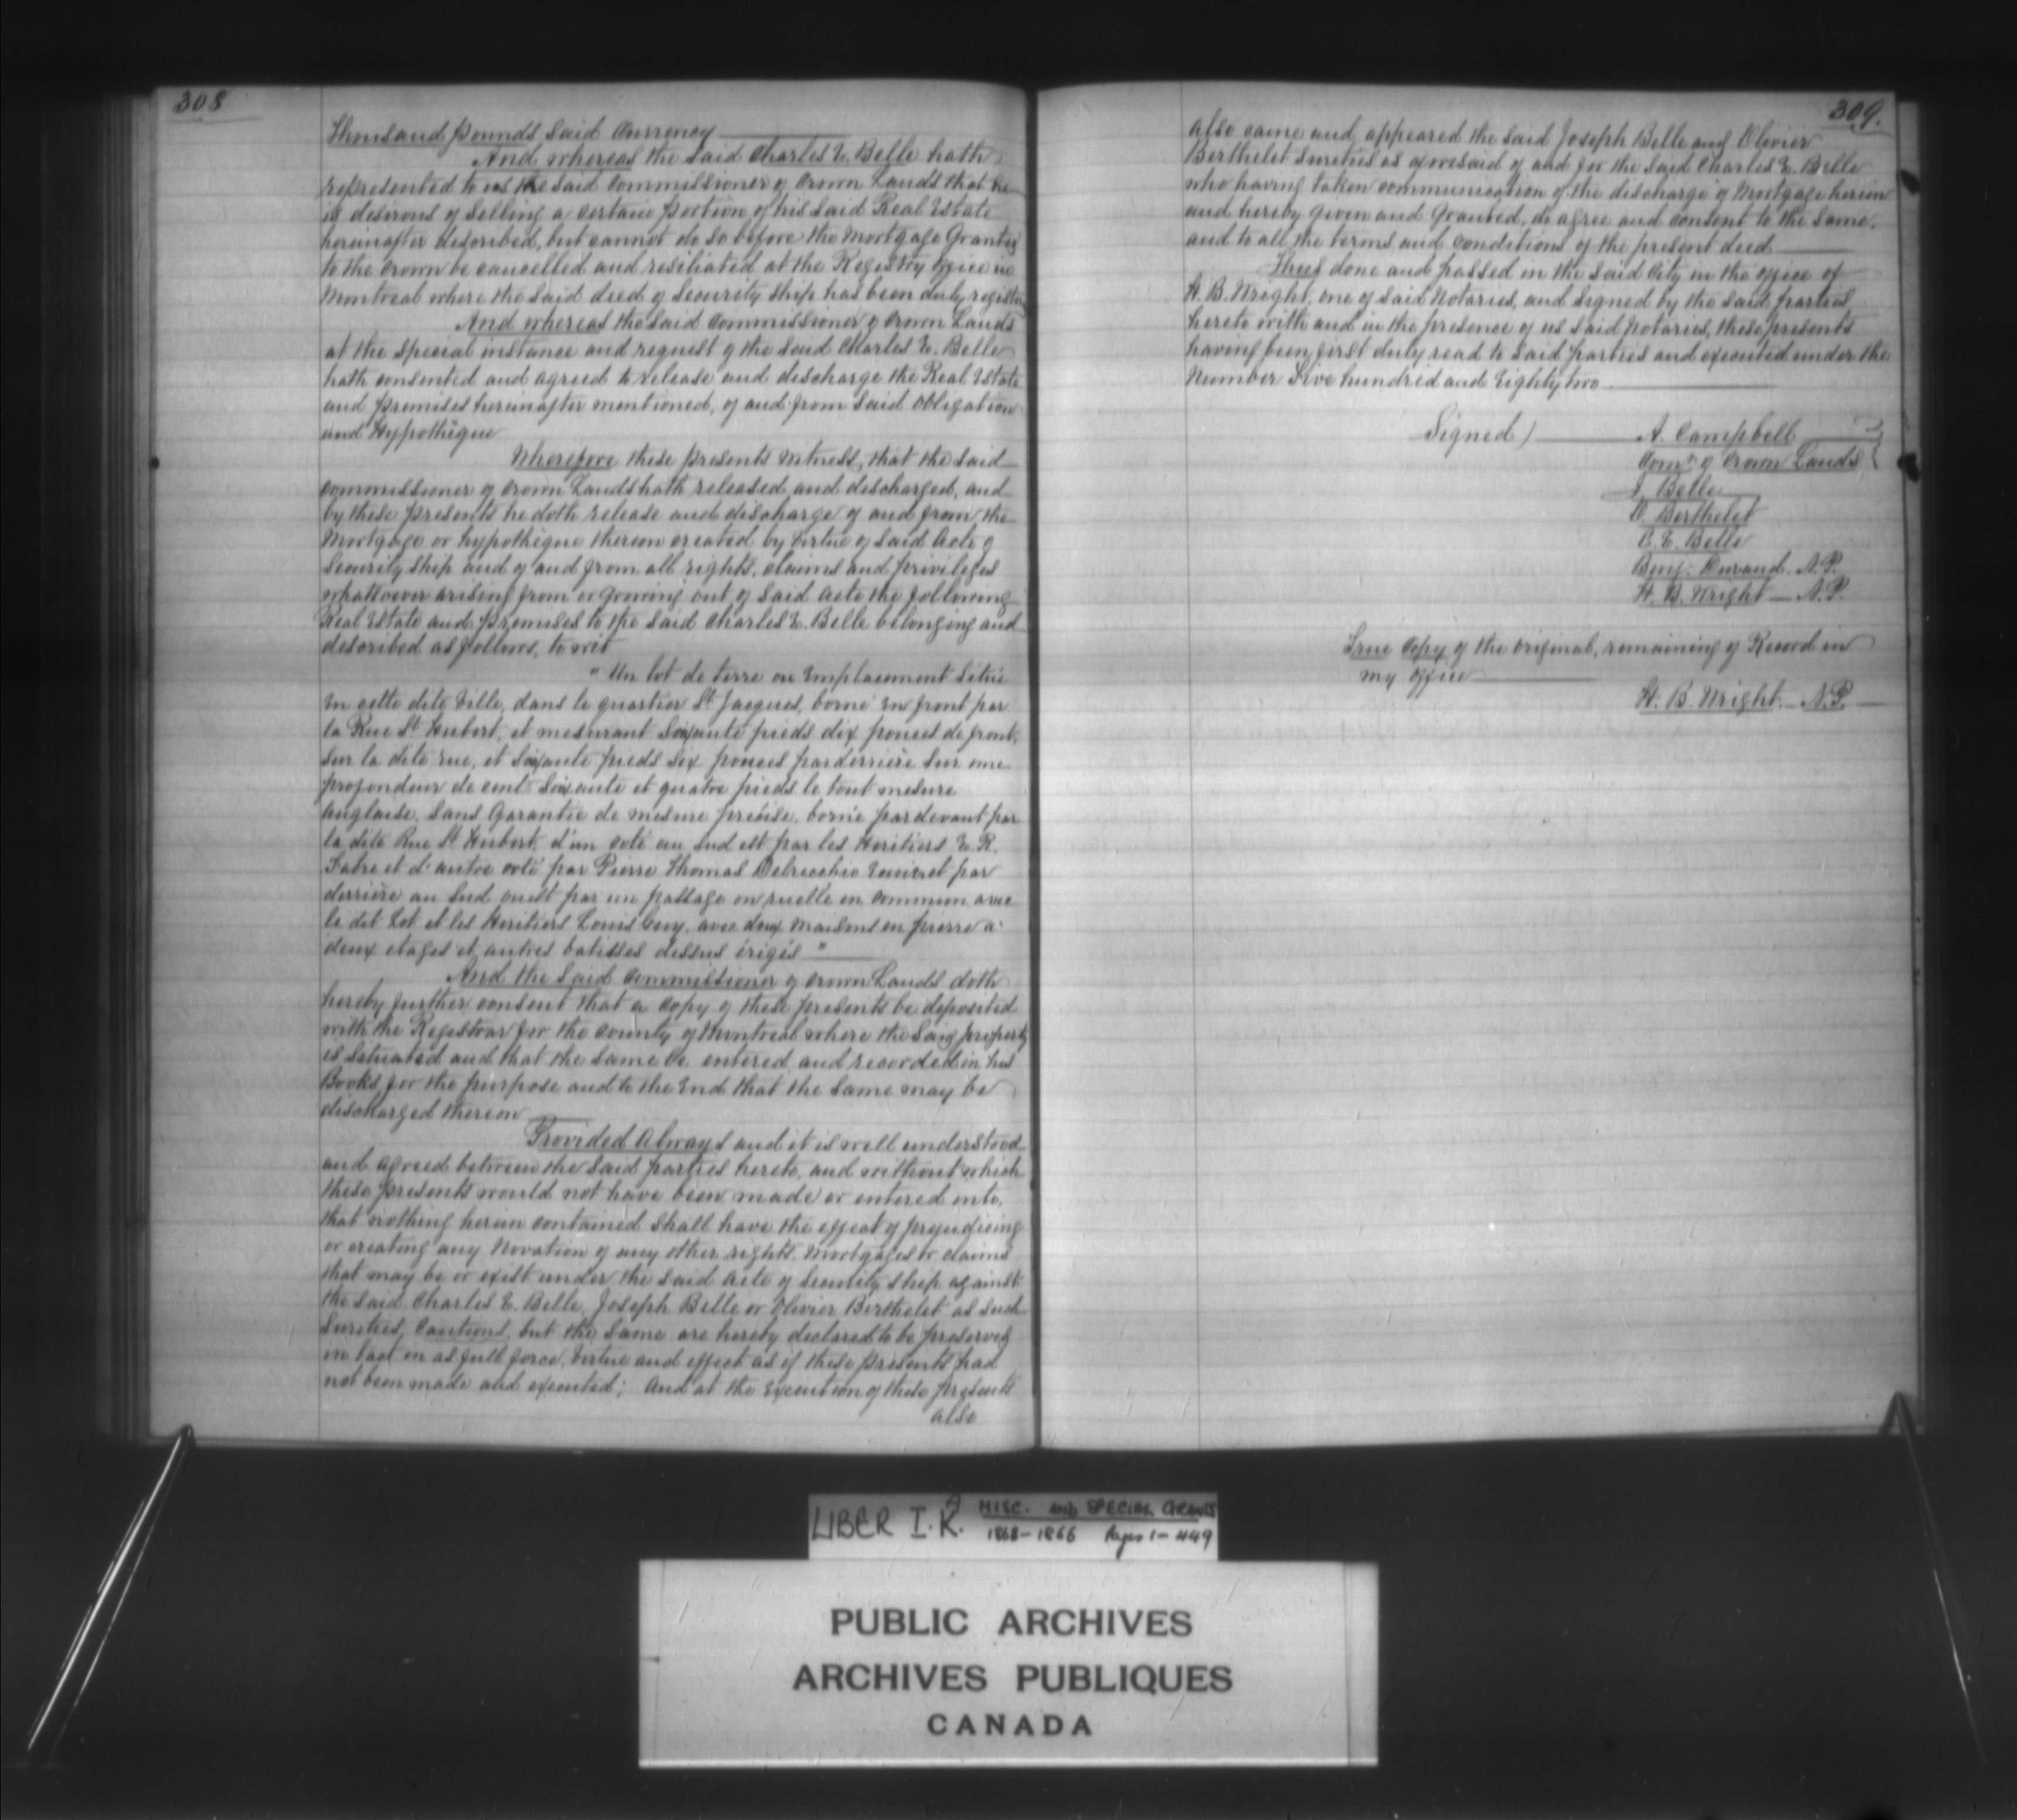 308
Thousand pounds said Currency
And whereas the said Charles E. Belle hath
represented to us the said Commissioner of Crown Lands that he
is desirous of selling a certain portion of his said Real Estate
hereinafter described, but cannot do so before the Mortgage Granted
to the Crown be cancelled and resiliated at the Registry office in
Montreal where the said deed of Security ship has been duly
And whereas the said Commissioner of Crown Lands
at the special instance and request of the said Charles E. Belle
hath consented and agreed to release and discharge the Real Estate
and premises hereinafter mentioned, of and from said Obligation
and Hypothèque
Wherefore these presents Witness, that the said
Commissioner of Crown Lands hath released and discharged, and
by these presents he doth release and discharge of and from the
Mortgage or hypothèque thereon created by Virtue of said Acte of
Security ship and of and from all rights, claims and privileges
whatsoever arising from or growing out of said Acte the following
Real Estate and premises to the said Charles E. Belle belonging and
described as follows, to wit
" Un lot de terre ou Emplacement Situé
En cette dite Ville, dans le quartier St Jacques, borné En front par
la Rue St Hubert, et mesurant Soixante pieds dix pouces de front,
Sur la dite rue, et Soixante pieds six pouces par derrière sur une
profondeur de cent Soixante et quatre pieds le tout mesure
Anglaise, Sans Garantie de mesure précise, borné par devant par
la dite Rue St Hubert, d'un coté au Sud est par les Heritiers E. R.
Fabre et d'autre coté par Pierre Thomas Delvecchio et par
derrière au Sud ouest par un passage ou ruelle en commun avec
le dit Lot et les Heritiers Louis Guy, avec deux Maisons en pierre a
deux etages et autres batisses dessus érigés "
And the said Commissioner of Crown Lands doth
hereby further consent that a Copy of these presents be deposited
with the Registrar for the County of Montreal where the said property
is Situated and that the same be entered and recorded in his
Books for the purpose and to the End that the same may be
discharged thereon
Provided Always and it is well understood
and agreed between the said parties hereto, and without which
these presents would not have been made or entered into,
that nothing herein contained shall have the effect of prejudicing
or creating any Novation of any other rights, Mortgages or claims
that may be or exist under the said Acte of Security ship against
the said Charles E. Belle, Joseph Belle or Olivier Berthelet as such
Sureties, Cautions, but the same are hereby declared to be preserved
in tact in as full force, Virtue and effect as if these presents had
not been made and executed; And at the Execution of these presents
also
309.
also came and appeared the said Joseph Belle and Olivier
Berthelet Sureties as aforesaid of and for the said Charles E. Belle
who having taken communication of the discharge of Mortgage herein
and hereby given and Granted, do agree and consent to the same,
and to all the terms and conditions of the present deed
Thus done and passed in the said City in the office of
H. B. Wright, one of said Notaries, and Signed by the said parties
hereto with and in the presence of us said Notaries, these presents
having been first duly read to said parties and executed under the
Number Five hundred and Eighty two
Signed) A. Campbell
Comr. of Crown Lands
J. Belle
O. Berthelet
C. E. Belle
Benj: Durand. N.P.
H. B. Wright N.P.
True Copy of the original, remaining of Record in
my office
H. B. Wright. N.P.
LIBER I.K. MISC. AND SPECIAL GRANTS
1863-1866 Pages 1-449
PUBLIC ARCHIVES
ARCHIVES PUBLIQUES
CANADA